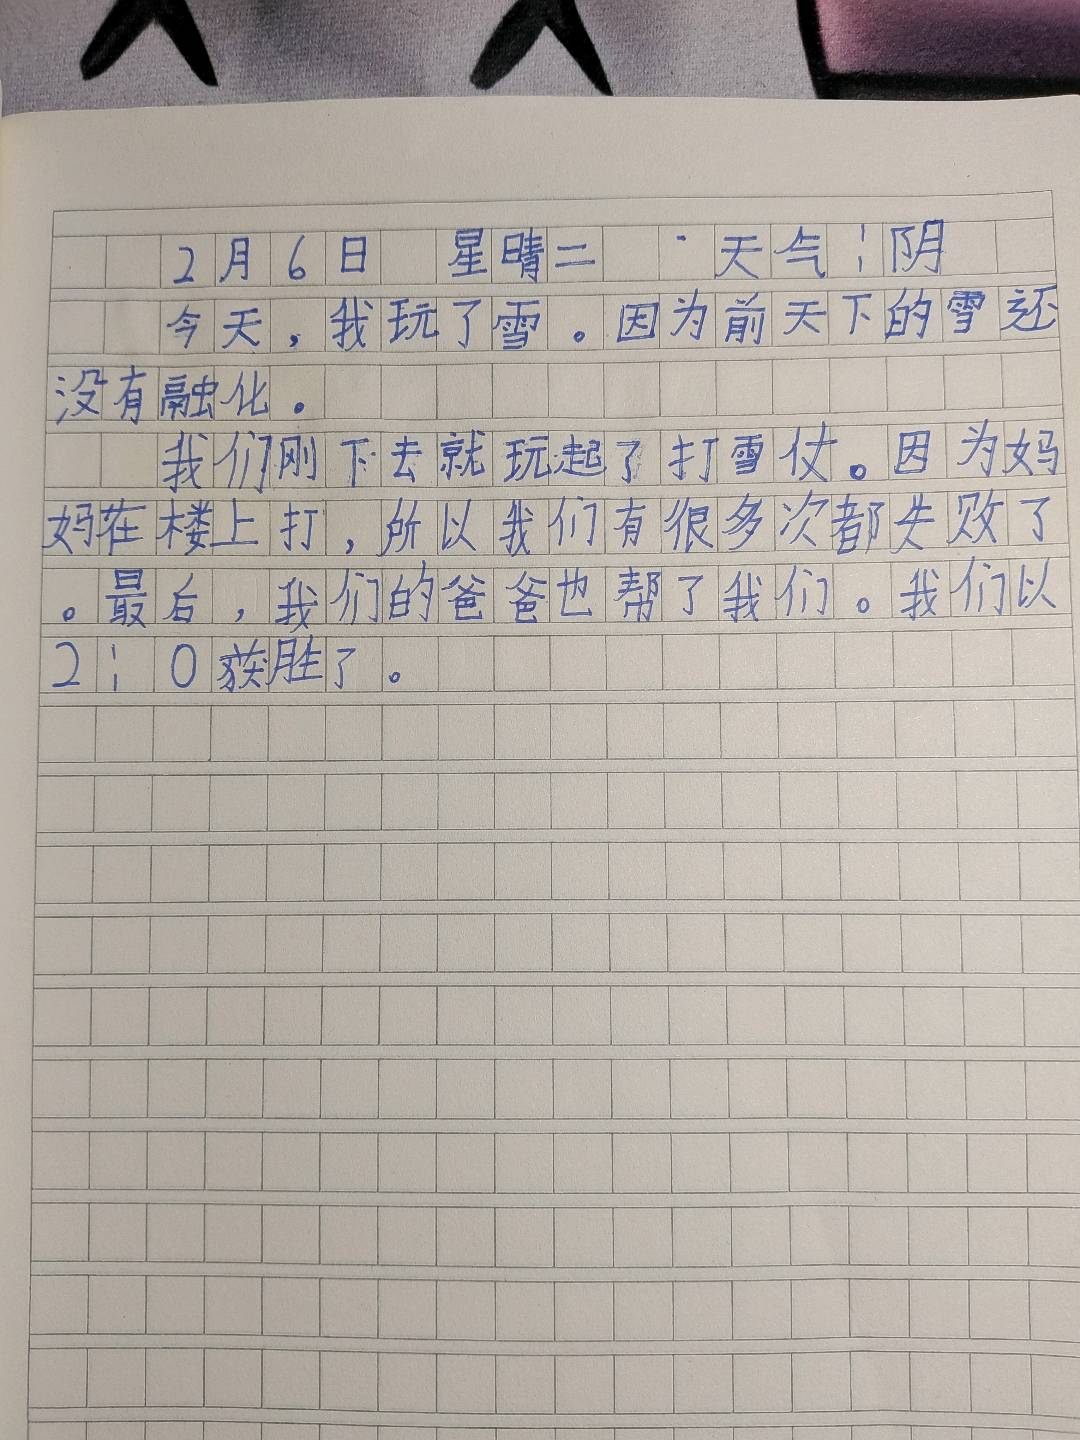 2月6日 星晴二 天气：阴
今天，我玩了雪。因为前天下的雪还
没有融化。
我们刚下去就玩起了打雪仗。因为妈
妈在楼上打，所以我们有很多次都失败了
。最后，我们的爸爸也帮了我们。我们以
2：0获胜了。